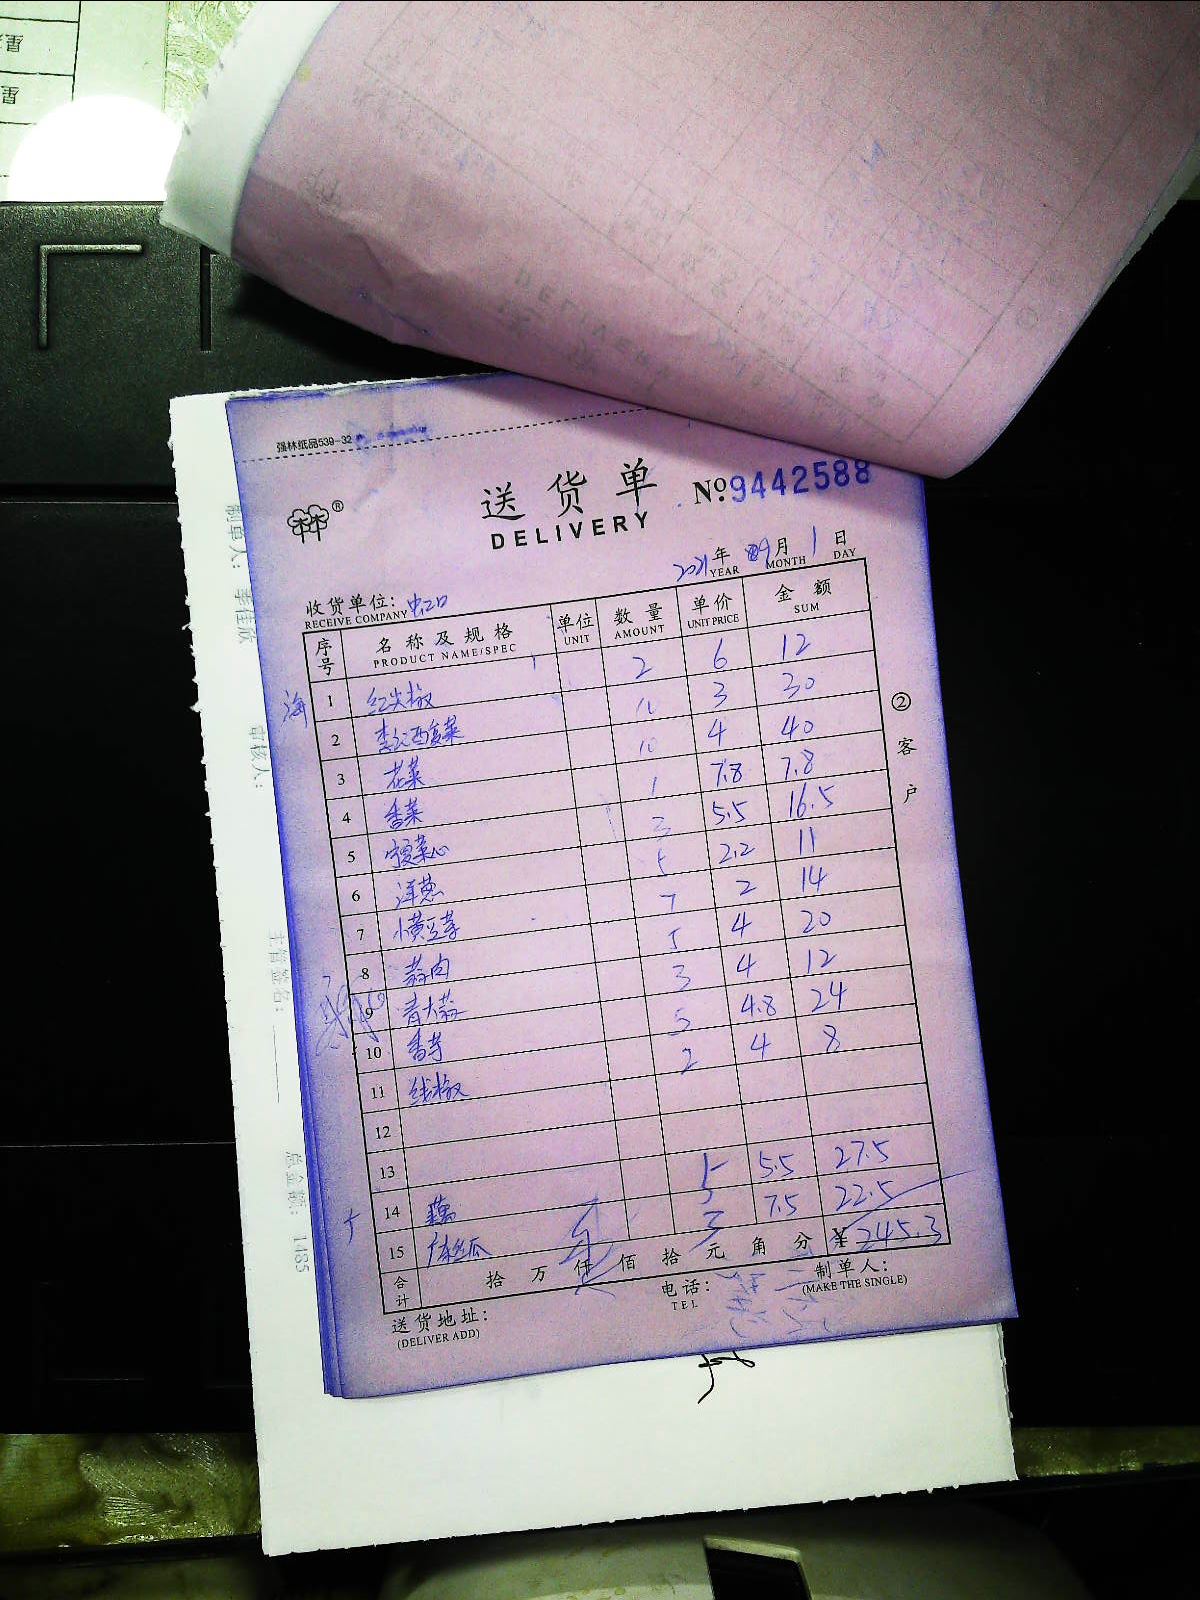 强林纸品539-32
送货单 №9442588
DELIVERY
2021年 09月 1日
YEAR MONTH DAY
收货单位: 虹口
RECEIVE COMPANY
序号 名称及规格 单位 数量 单价 金额
PRODUCT NAME/SPEC UNIT AMOUNT UNIT PRICE SUM
1 红尖椒 2 6 12
2 3 30
3 花菜 10 4 40
4 香菜 1 7.8 7.8
5 宁夏菜心 3 5.5 16.5
6 洋葱 5 2.2 11
7 小黄豆芽 7 2 14
8 蒜肉 5 4 20
9 青大蒜 3 4 12
10 香芋 5 4.8 24
11 线椒 2 4 8
12
13
14 藕 5 5.5 27.5
15 3 7.5 22.5
合计 拾 万 仟 佰 拾 元 角 分 ¥245.3
送货地址:
(DELIVER ADD)
电话:
TEL
制单人:
(MAKE THE SINGLE)
②客户
海
制单人:
审核人:
主管签名:
总金额: 1435